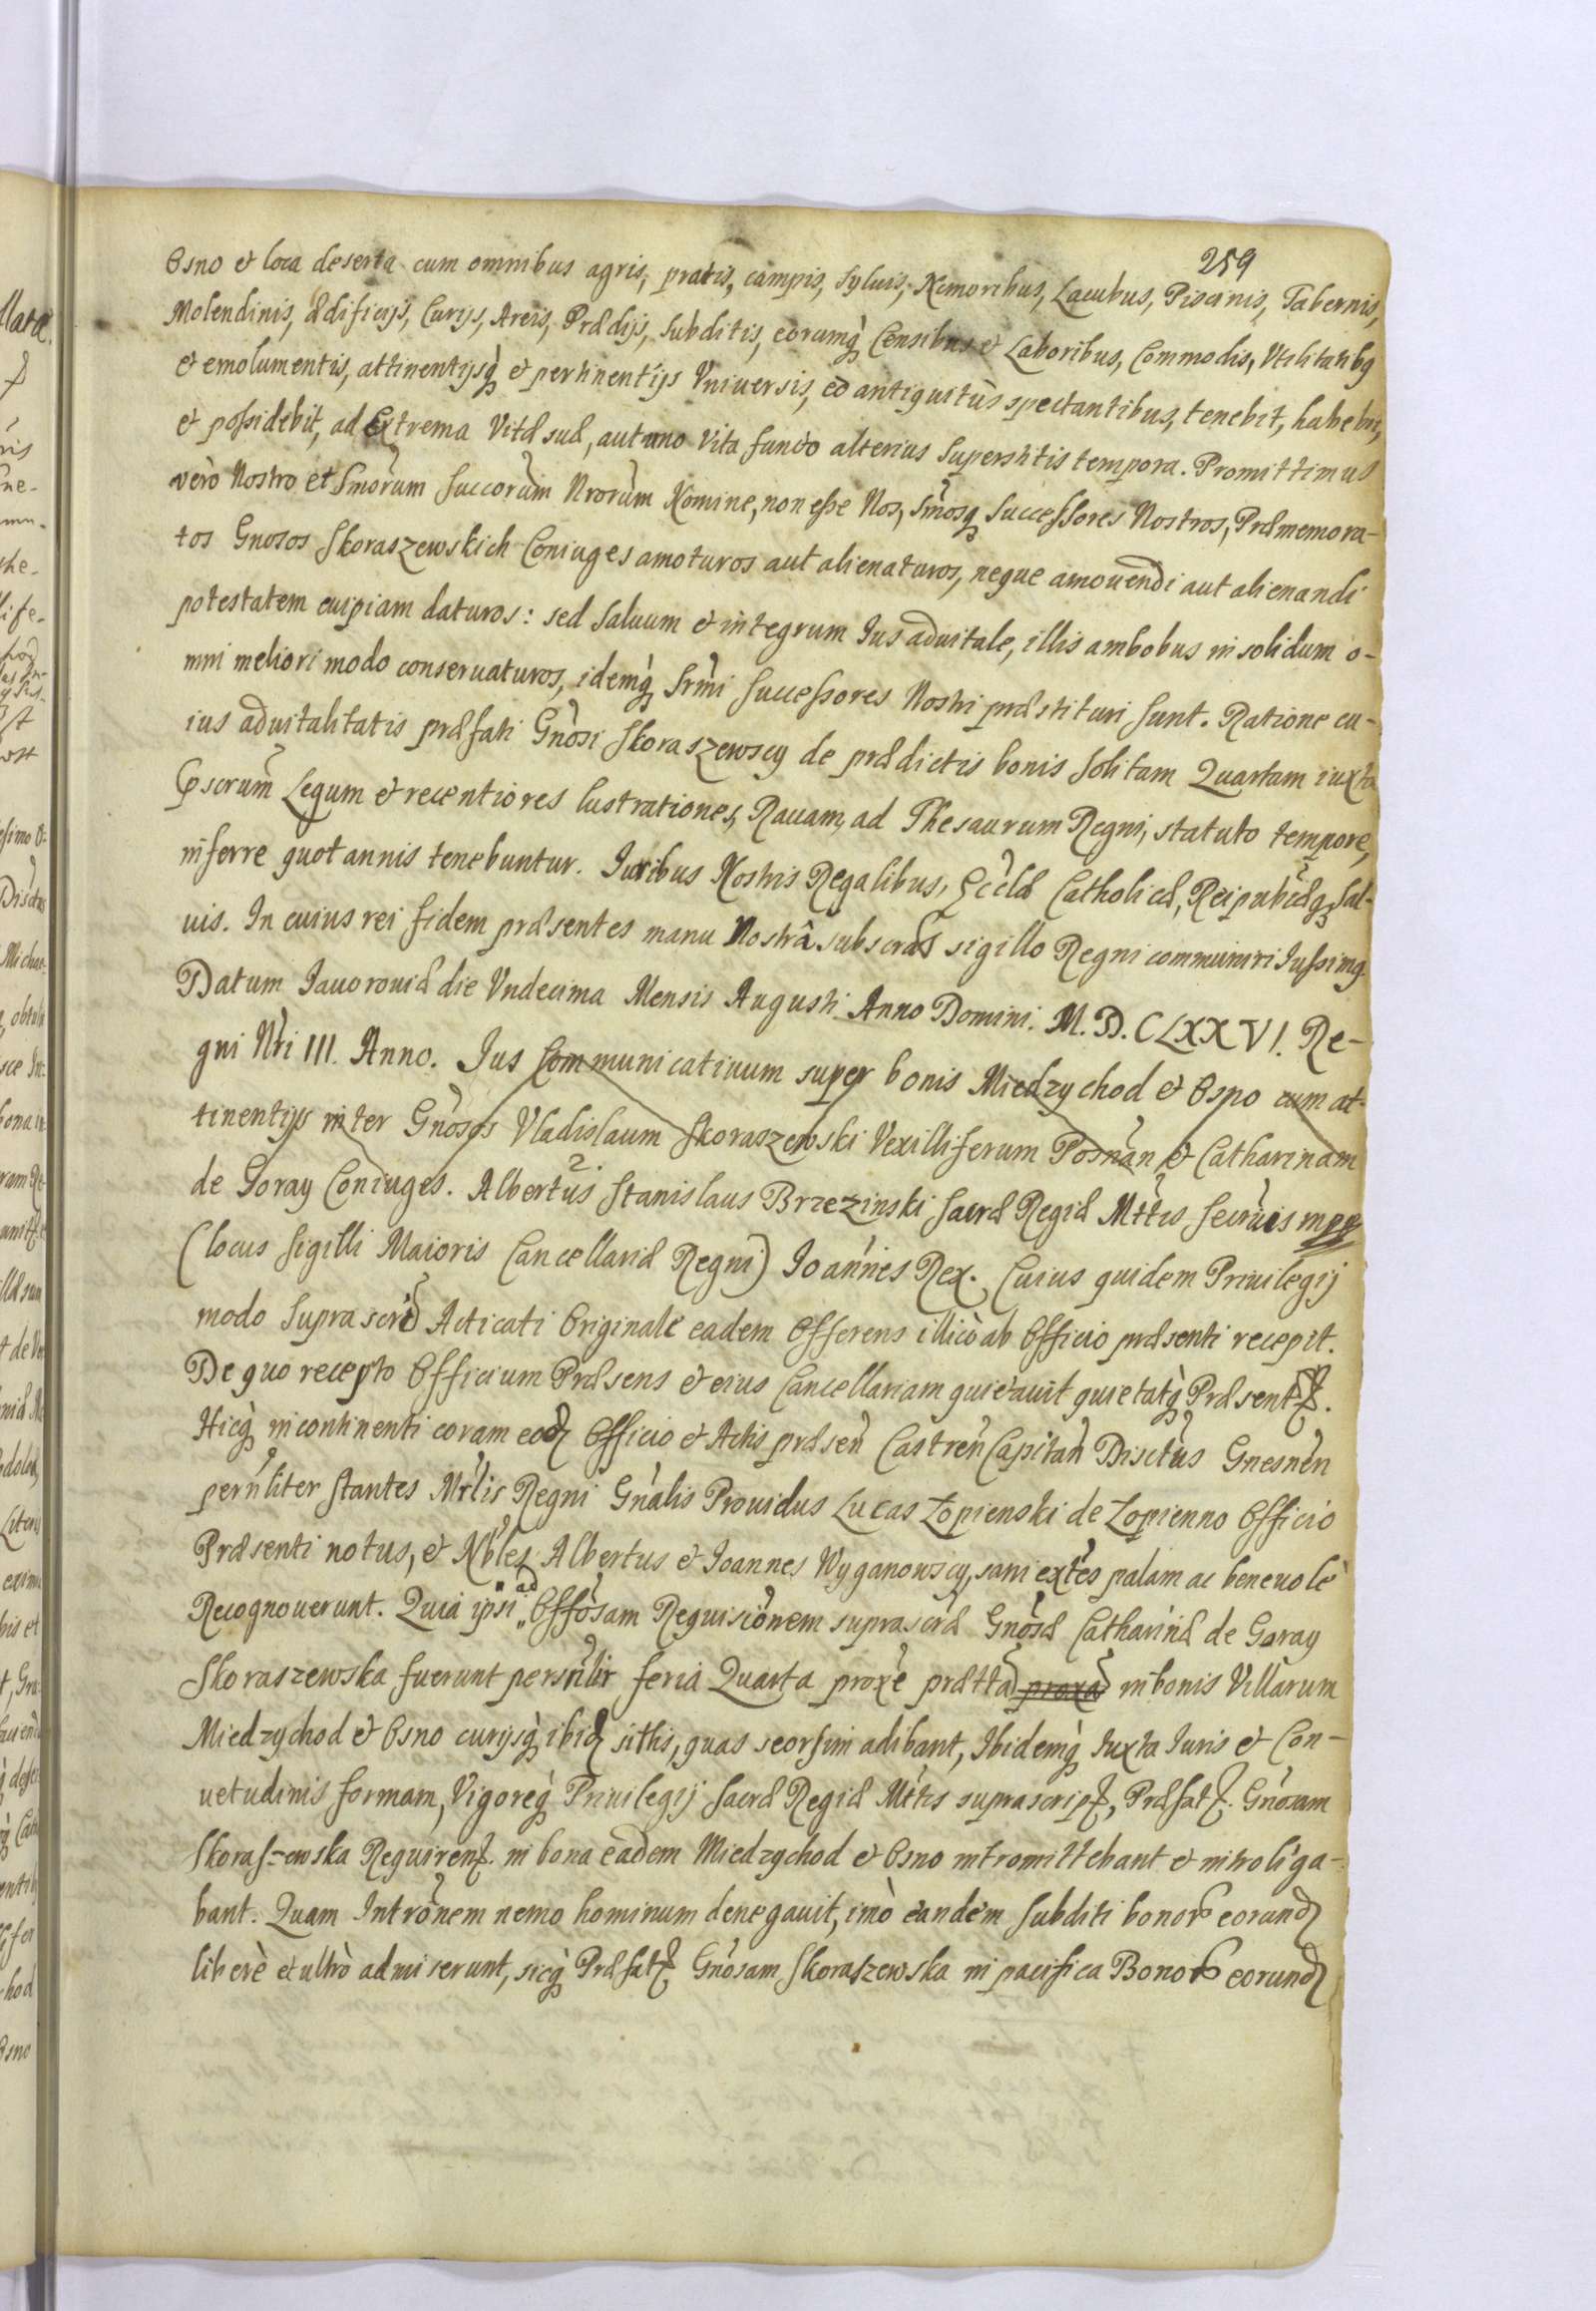 259
Osno et loca deserta cum omnibus agris, pratis, campis, syluis, Nemoribus, Lacubus, Piscinis, Tabernis,
Molendinis, ædificijs, Curijs, Areis, Prædijs, subditis, eorumq; Censibus et Laboribus, Commodis, Vtilitatibq
et emolumentis, attinentijsq; et pertinentijs Vniuersis, eò antiquitùs spectantibus, tenebit, habebit,
et possidebit, ad extrema Vitæ suæ, aut uno Vita functo alterius superstitis tempora. Promittimus
verò Nostro et Smorum Succorum Nrorum Nomine, non esse Nos, Smosq; Successores Nostros, Præmemora-
tos Gnosos Skoraszewskich Coniuges amoturos aut alienaturos, neque amouendi aut alienandi
potestatem cuipiam daturos: sed saluum et integrum Ius aduitale, illis ambobus in solidum o-
mni meliori modo conseruaturos, idemq; Srmi Successores Nostri præstituri sunt. Ratione cu-
ius aduitalitatis præfati Gnosi Skoraszewscy de prædictis bonis solitam Quartam iuxta
Legum et recentiores lustrationes, Rauam, ad Thesaurum Regni, statuto tempore,
inferre quotannis tenebuntur. Iuribus Nostris Regalibus, Ecclæ Catholicæ, Reipubcæq; sal-
uis. In cuius rei fidem præsentes manu Nostrâ subscras sigillo Regni communiri Iussimq.
Datum Iauorouiæ die Vndecima Mensis Augusti Anno Domini. M.D.CLXXVI. Re-
gni Nri III. Anno. Ius Communicatiuum super bonis Miedzychod et Osno cum at-
tinentijs inter Gnosos Vladislaum Skoraszewski Vexilliferum Posnan et Catharinam
de Goray Coniuges. Albertus 2. Stanislaus Brzezinski Sacræ Regiæ Mttis Secruis mpp
(locus Sigilli Maioris Cancellariæ Regni) Ioannes Rex. Cuius quidem Priuilegij
modo suprascri Acticati Originale eadem Offerens illicò ab Officio præsenti recepit.
De quo recepto Officium Præsens et eius Cancellariam quietauit quietatq; Præsent.
Hicq; incontinenti coram eod Officio et Actis præsen Castren Capitan Disctus Gnesnen
pernliter stantes Mrlis Regni Gnalis Prouidus Lucas Łopienski de Łopienno Officio
Præsenti notus, et Nbles Albertus et Ioannes Wyganowscy, sani extes palam ac beneuolè
Recognouerunt. Quia ipsi ad Offosam Requisiönem suprascræ Gnosæ Catharinæ de Goray
Skoraszewska fuerunt persnlir feria Quarta proxe prætta proxa in bonis Villarum
Miedzychod et Osno curijsq; ibid sitis, quas seorsim adibant, Ibidemq; Iuxta Iuris et Con-
uetudinis formam, Vigoreq; Priuilegij Sacræ Regiæ Mttis suprascrip, Præfat. Gnosam
Skoraszewska Requiren. in bona eadem Miedzychod et Osno intromittebant et introliga-
bant. Quam Intronem nemo hominum denegauit, imò eandem subditi bonor eorund
liberè et ultrò admiserunt, sicq; Præfat Gnosam Skoraszewska in pacifica Bonor eorund